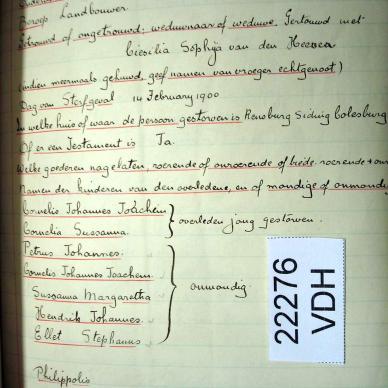 Beroep Landbouwer
Getrouwd of ongetrouwd; weduwnaar of weduwe. Getouwd met
Ciesilia Sophija van den Heever
(indien meermaals gehuwd, geef namen van vroeger echtgenoot)
Dag van Sterfgeval 14 February 1900
In welke huis of waar de persoon gestorwen is Rensburg Siding Colesburg
Of er een Testament is Ja.
Welke goederen nagelaten, roerende of onroerende of beide. roerende + onr
Namen der kinderen van den overledene, en of mondige of onmondig
Cornelis Johannes Joachem
Cornelia Susanna. } overleden jong gestorwen.
Petrus Johannes.
Cornelis Johannes Joachem.
Susanna Margaretha
Hendrik Johannes.
Ellet Stephanus } onmondig.
Philippolis
22276
VDH